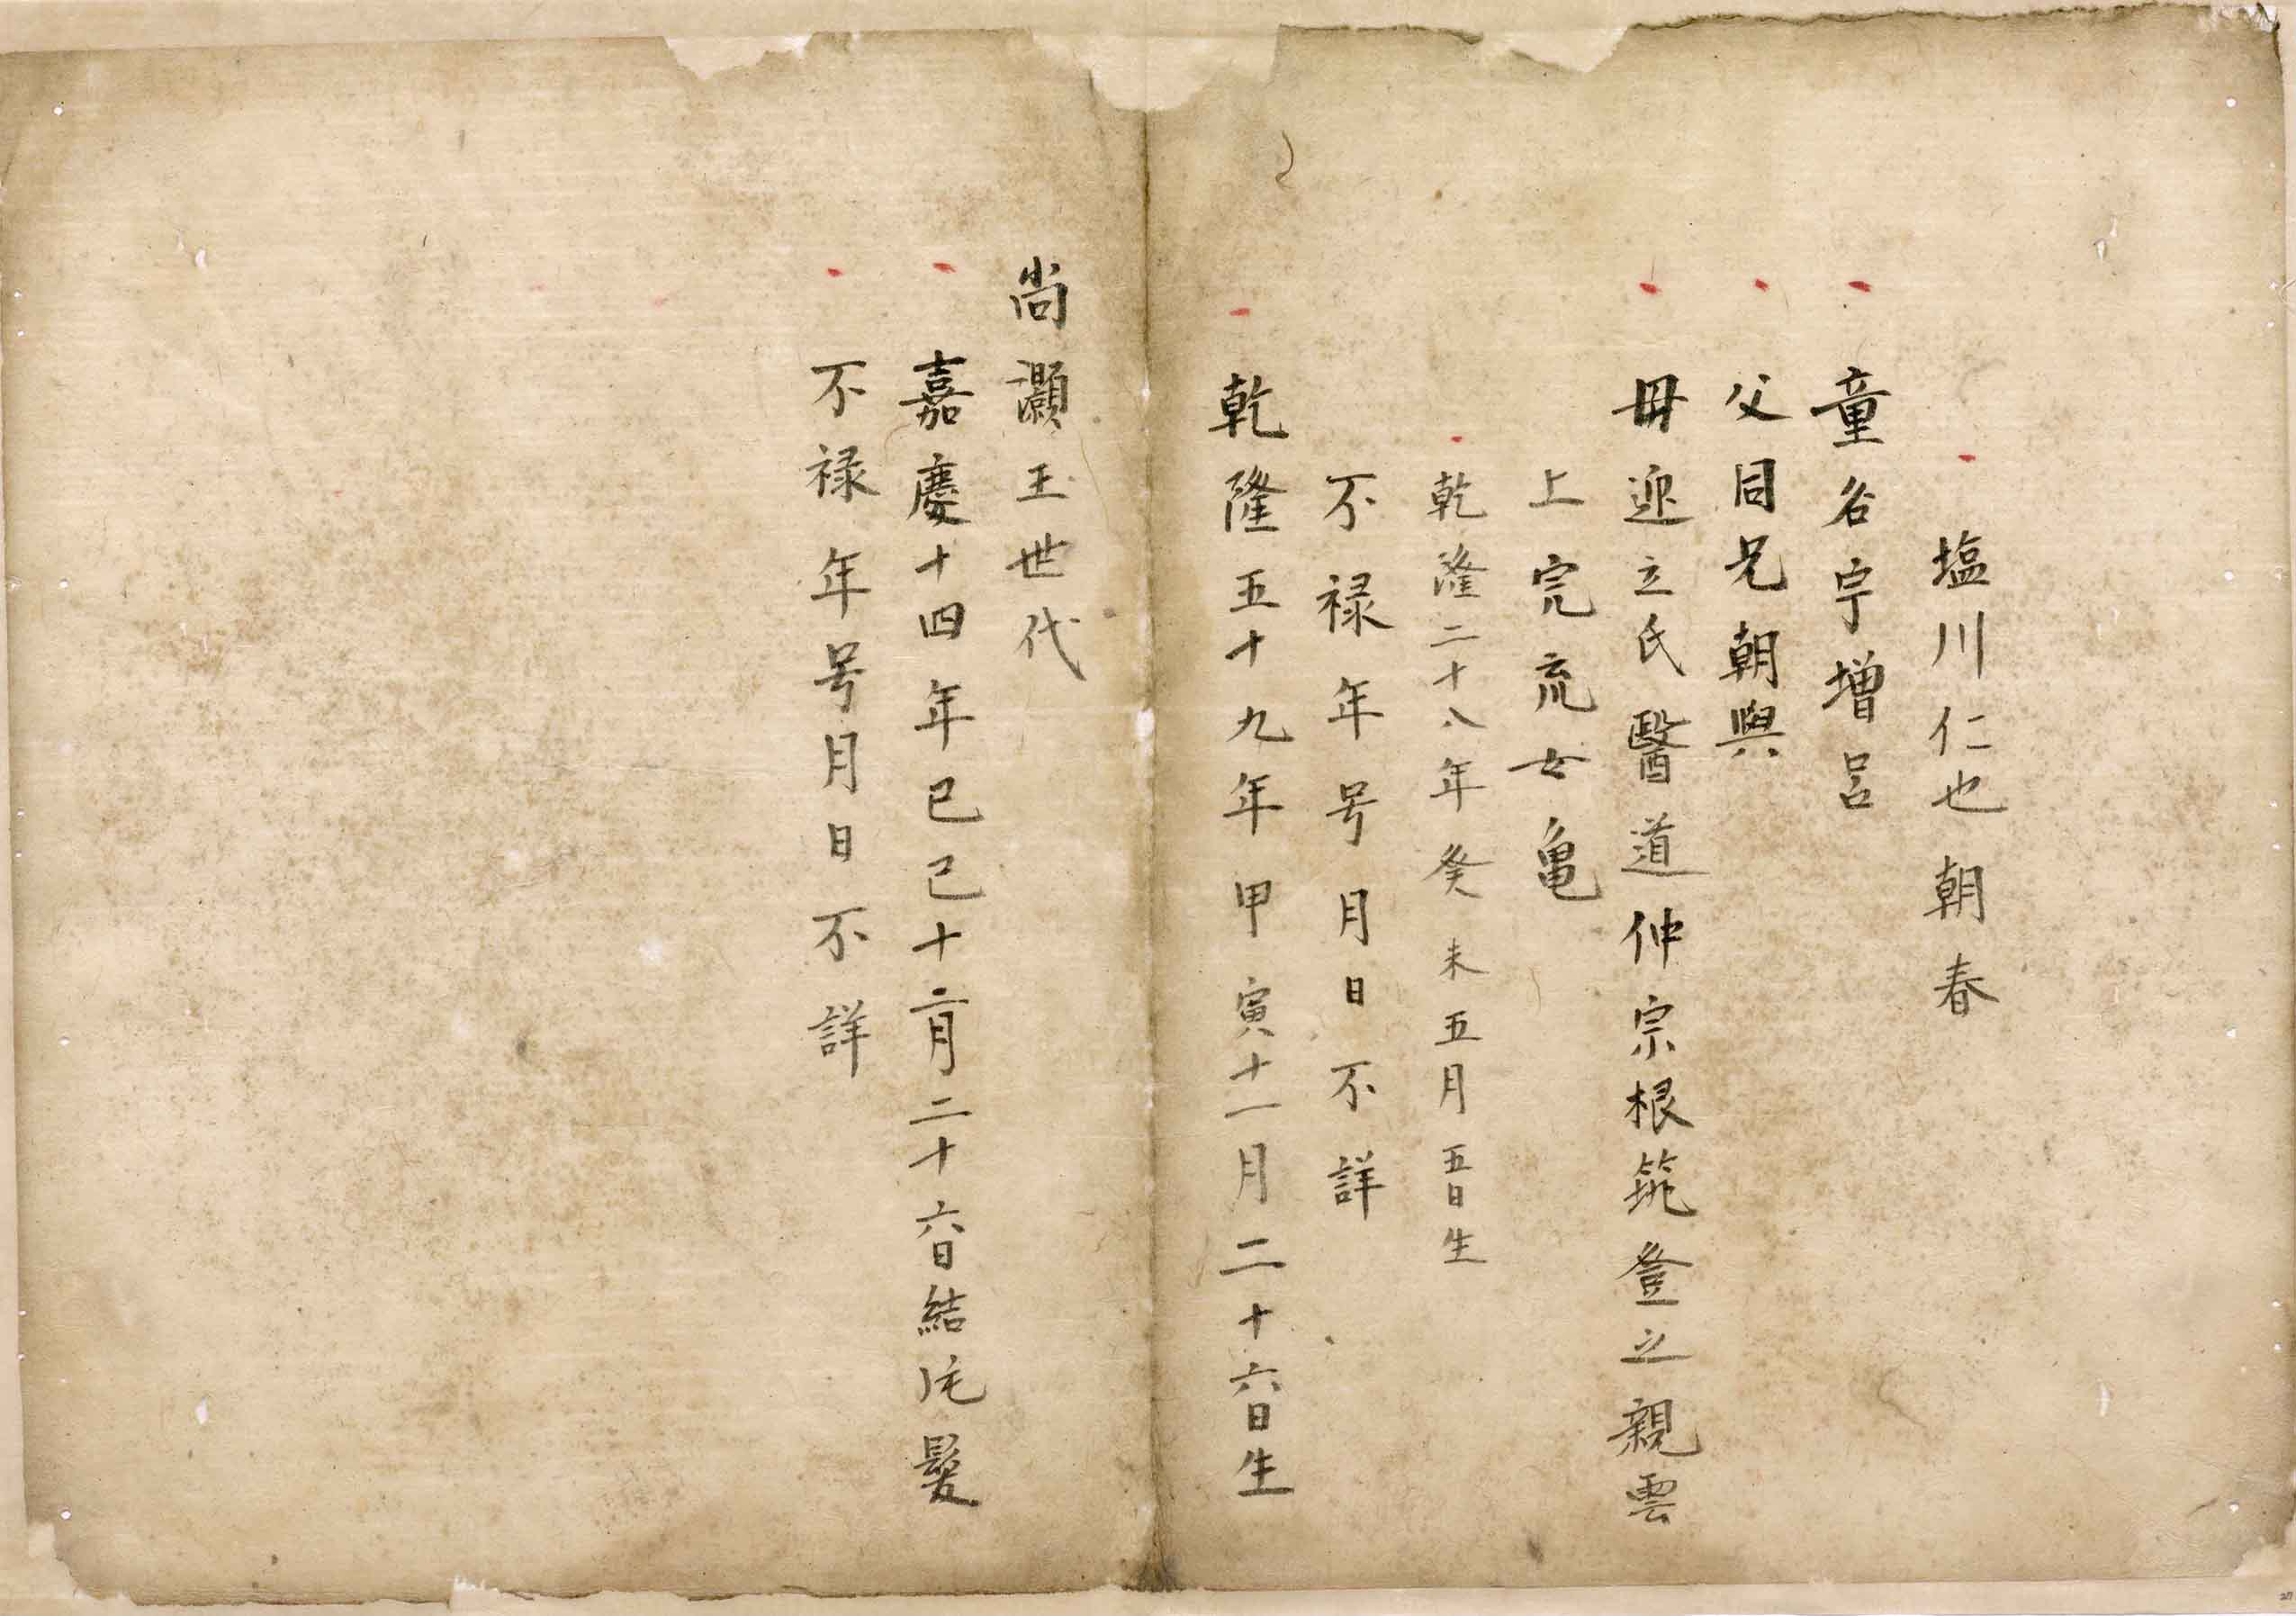 塩川仁也朝春
童名宇増呂
父同兄朝興
毋迎立氏醫道仲宗根筑登之親雲
上完流女亀
乾隆二十八年癸未五月五日生
不禄年号月日不詳
乾隆五十九年甲寅十一月二十六日生
尚灝王世代
嘉慶十四年己巳十二月二十六日結片髪
不禄年号月日不詳